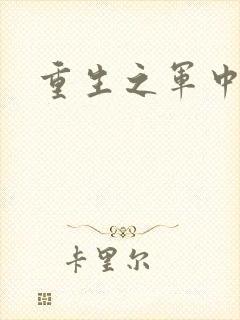 重生之军中
卡里尔